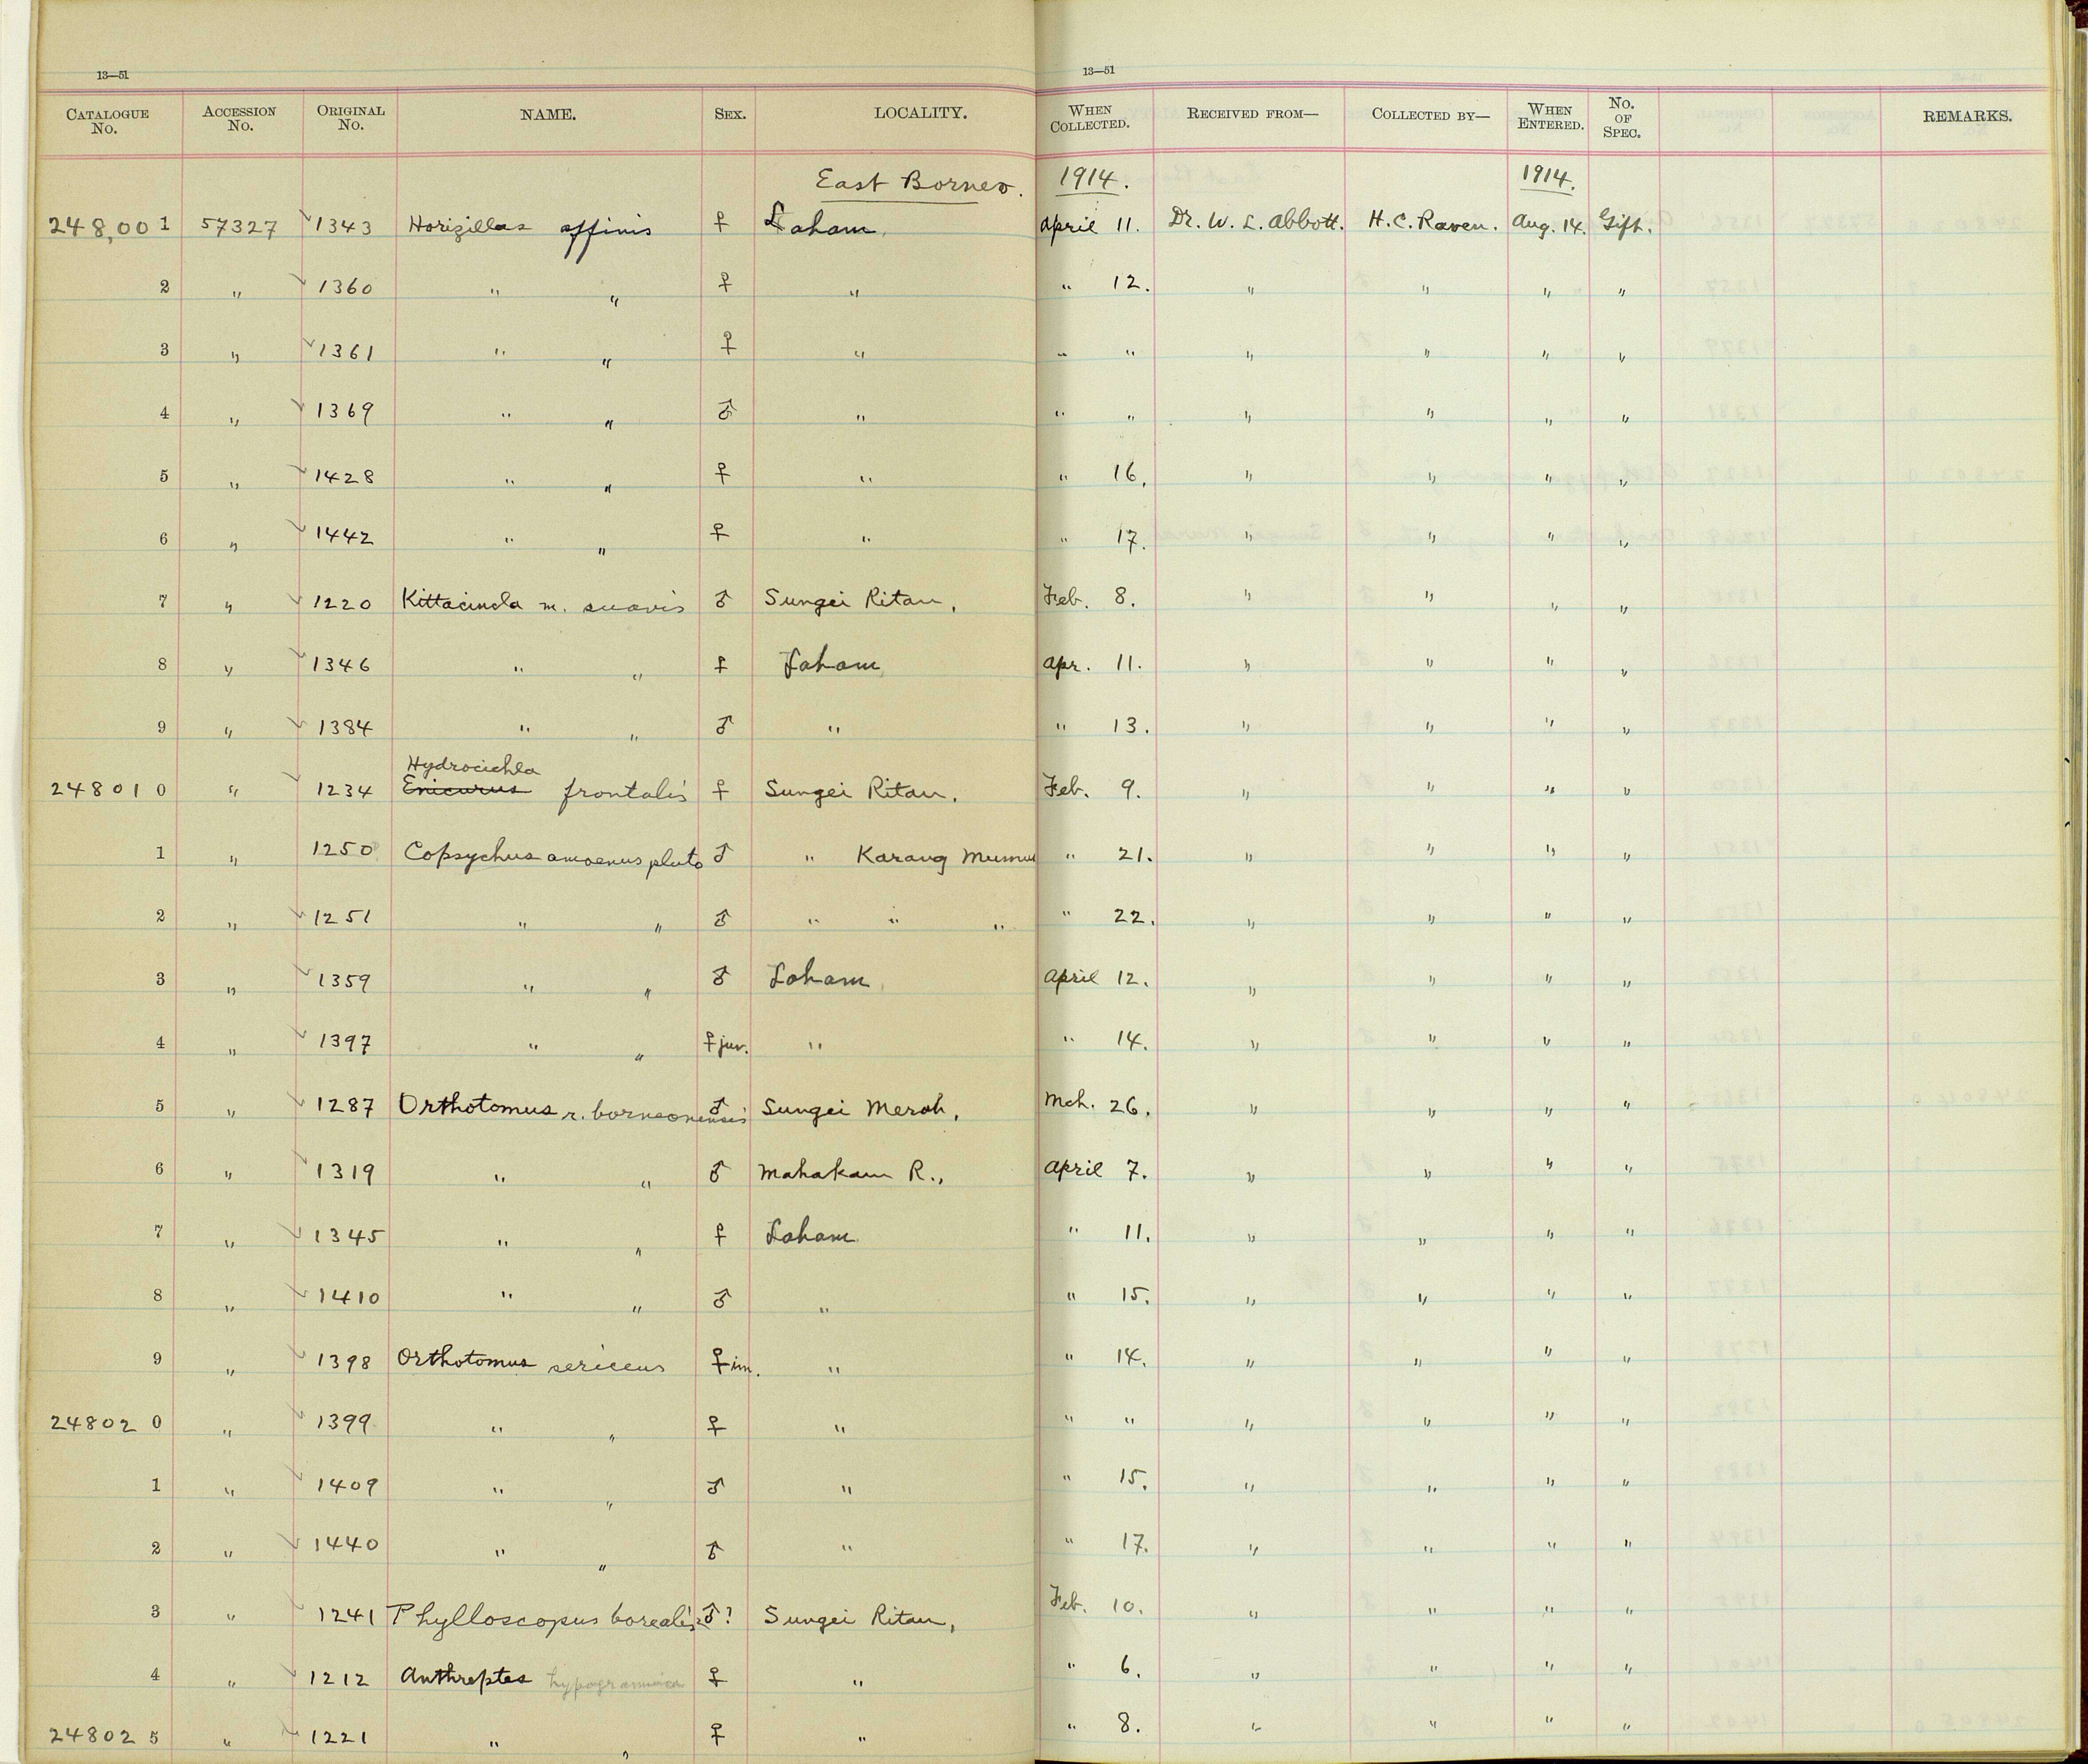 13—51 13—51
CATALOGUE No. ACCESSION No. ORIGINAL No. NAME. SEX. LOCALITY. WHEN COLLECTED. RECEIVED FROM— COLLECTED BY— WHEN ENTERED. No. OF SPEC. REMARKS.
East Borneo. 1914. 1914.
248,001 57327 1343 Horizillas affinis ♀ Laham, April 11. Dr. W. L. Abbott. H. C. Raven. Aug. 14. Gift.
2 " 1360 " " ♀ " " 12. " " " "
3 " 1361 " " ♀ " " " " " " "
4 " 1369 " " ♂ " " " " " " "
5 " 1428 " " ♀ " " 16. " " " "
6 " 1442 " " ♀ " " 17. " " " "
7 " 1220 Kittacincla m. suavis ♂ Sungei Ritan, Feb. 8. " " " "
8 " 1346 " " ♀ Laham, Apr. 11. " " " "
9 " 1384 " " ♂ " " 13. " " " "
Hydrocichla
248010 " 1234 Enicurus frontalis ♀ Sungei Ritan, Feb. 9. " " " "
1 " 1250 Copsychus amoenus pluto ♂ " Karang Mumus " 21. " " " "
2 " 1251 " " ♂ " " " " 22. " " " "
3 " 1359 " " ♂ Laham, April 12. " " " "
4 " 1397 " " ♀ juv. " " 14. " " " "
5 " 1287 Orthotomus r. borneonensis ♂ Sungei Merah, Mch. 26. " " " "
6 " 1319 " " ♂ Mahakam R., April 7. " " " "
7 " 1345 " " ♀ Laham. " 11. " " " "
8 " 1410 " " ♂ " " 15. " " " "
9 " 1398 Orthotomus sericeus ♀ im. " " 14. " " " "
248020 " 1399 " " ♀ " " " " " " "
1 " 1409 " " ♂ " " 15. " " " "
2 " 1440 " " ♂ " " 17. " " " "
3 " 1241 Phylloscopus borealis ♂? Sungei Ritan, Feb. 10. " " " "
4 " 1212 Anthreptes ♀ " " 6. " " " "
248025 " 1221 " " ♀ " " 8. " " " "